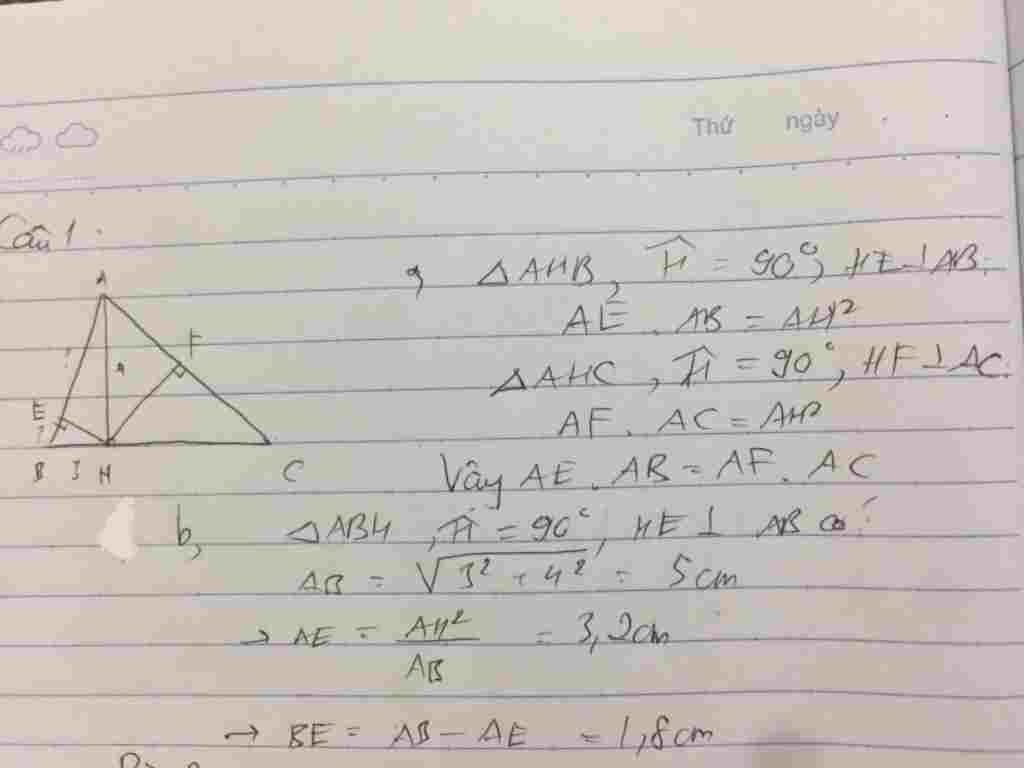 Thứ ngày
Câu 1:
A
F
4
E
B 3 H C
a, △AHB, Ĥ = 90°, HE ⊥ AB:
AE . AB = AH²
△AHC, Ĥ = 90°, HF ⊥ AC.
AF . AC = AH²
Vậy AE . AB = AF . AC
b, △ABH, Ĥ = 90°, HE ⊥ AB có:
AB = √3² + 4² = 5cm
→ AE = AH²/AB = 3,2cm
→ BE = AB − AE = 1,8cm